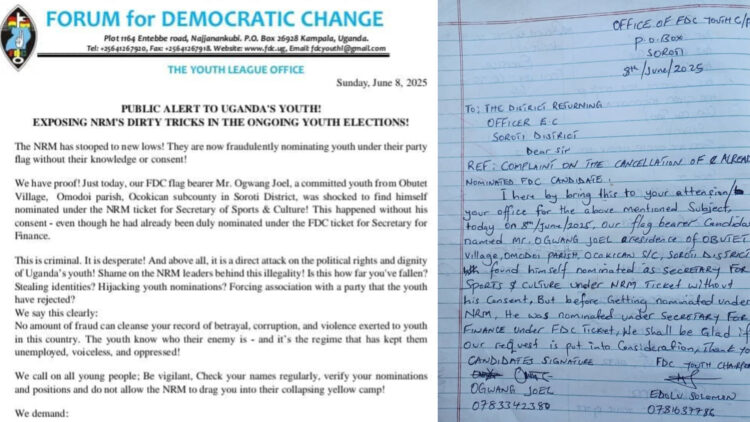 FORUM for DEMOCRATIC CHANGE
Plot 1164 Entebbe road, Najjanankubi. P.O. Box 26928 Kampala, Uganda.
Tel: +25641267920, Fax: +25641267918. Website: www.fdc.ug, Email: fdcyouthl@gmail.com
THE YOUTH LEAGUE OFFICE
Sunday, June 8, 2025
PUBLIC ALERT TO UGANDA'S YOUTH!
EXPOSING NRM'S DIRTY TRICKS IN THE ONGOING YOUTH ELECTIONS!
The NRM has stooped to new lows! They are now fraudulently nominating youth under their party
flag without their knowledge or consent!
We have proof! Just today, our FDC flag bearer Mr. Ogwang Joel, a committed youth from Obutet
Village, Omodoi parish, Ocokican subcounty in Soroti District, was shocked to find himself
nominated under the NRM ticket for Secretary of Sports & Culture! This happened without his
consent - even though he had already been duly nominated under the FDC ticket for Secretary for
Finance.
This is criminal. It is desperate! And above all, it is a direct attack on the political rights and dignity
of Uganda's youth! Shame on the NRM leaders behind this illegality! Is this how far you've fallen?
Stealing identities? Hijacking youth nominations? Forcing association with a party that the youth
have rejected?
We say this clearly:
No amount of fraud can cleanse your record of betrayal, corruption, and violence exerted to youth
in this country. The youth know who their enemy is - and it's the regime that has kept them
unemployed, voiceless, and oppressed!
We call on all young people; Be vigilant, Check your names regularly, verify your nominations
and positions and do not allow the NRM to drag you into their collapsing yellow camp!
We demand:
OFFICE OF FDC YOUTH C/P
P.O. BOX
SOROTI
8th/June/2025
TO: THE DISTRICT RETURNING
OFFICER E.C
SOROTI DISTRICT
Dear Sir
REF: COMPLAINT ON THE CANCELLATION OF A ALREA
NOMINATED FDC CANDIDATE:
I here by bring this to your attension/
your office for the above mentioned Subject,
today on 8th/June/2025, our flag bearer Candida
named MR. OGWANG JOEL a residence of OBUTET
Village, OMODOI PARISH, OCOKICAN S/C, SOROTI DISTRICT
found himself nominated as SECRETARY FOR
SPORTS & CULTURE under NRM TICKET without
his Consent, But before Getting nominated under
NRM, He was nominated under SECRETARY FOR
FINANCE under FDC TICKET, We Shall be Glad if
our request is put into Consideration, Thank yo
CANDIDATES SIGNATURE FDC YOUTH CHAIRP
OGWANG JOEL EDOLU SOLOMON
0783342380 0781637786